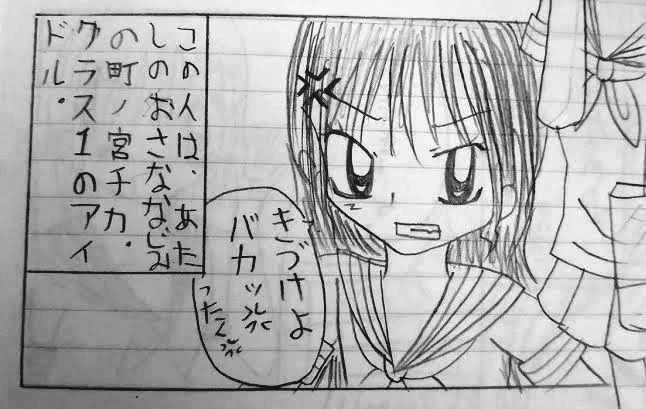 この人は、あた
しのおさななじみ
の町ノ宮チカ.
クラス1のアイ
ドル.
きづけよ
バカッ
ったく